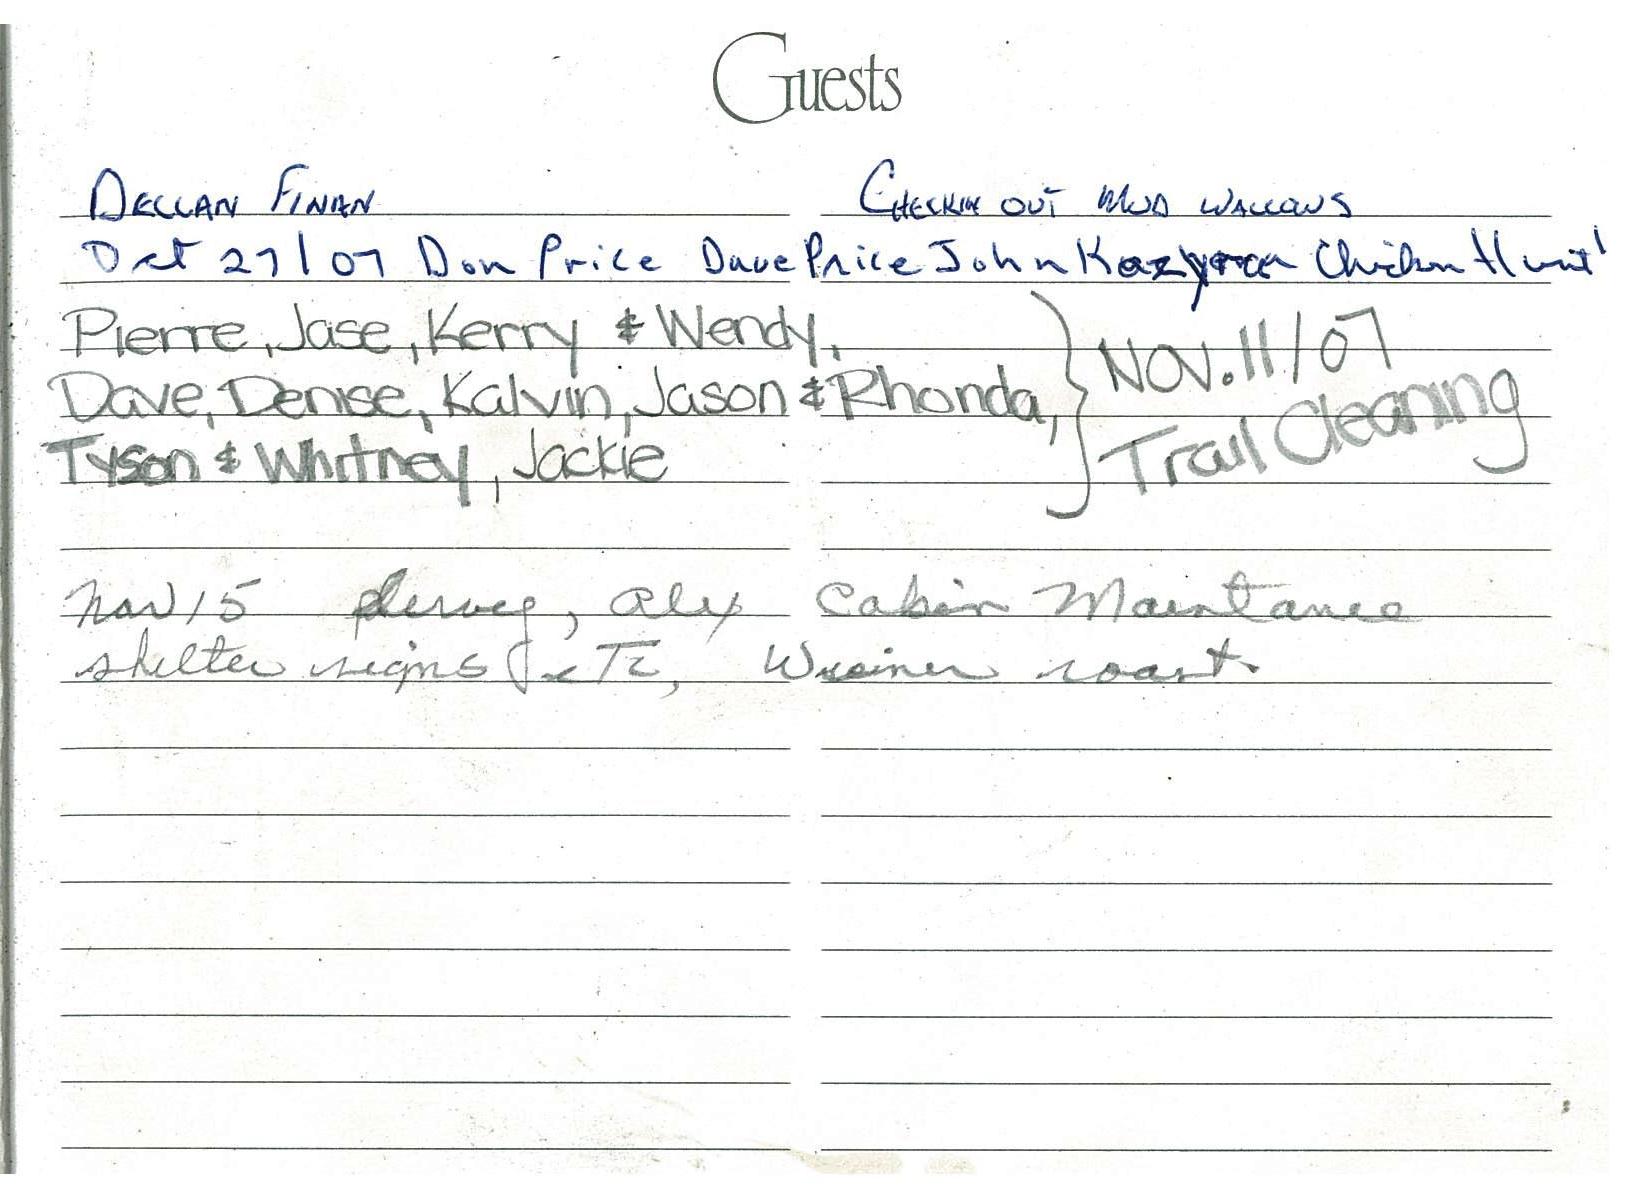 Guests
DECLAN FINAN CHECKIN OUT MUD WALLOWS
Oct 27/07 Don Price Dave Price John Chicken Hunt
Pierre, Jase, Kerry & Wendy,
Dave, Denise, Kalvin, Jason & Rhonda, NOV. 11/07
Tyson & Whitney, Jackie Trail Cleaning
Nov 15 Alex Cabin Maintance
shelter signs etc, Weiner roast.